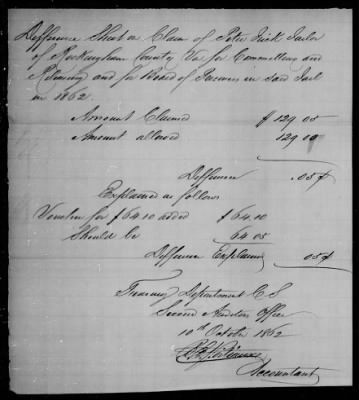 Difference Sheet on Claim of Peter Irick Jailor
of Rockingham County Va for Committing and
Releasing and for Board of Prisoners in said Jail
in 1862.
Amount Claimed $ 129.05
Amount allowed 129.00
Difference .05 ¢
Explained as follows
Voucher for $64.10 added $64.10
Should be 64.05
Difference Explained .05 ¢
Treasury Department C.S.
Second Auditors Office
10th October 1862
Accountant